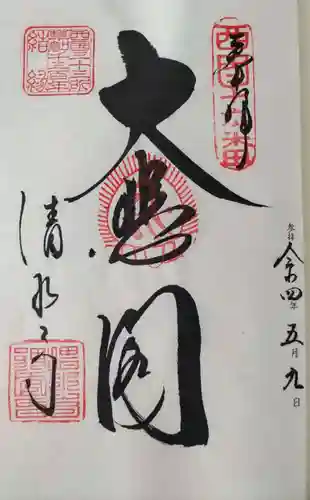 奉拝
西国十六番
参拝 令和四年 五月九日
大悲閣
西國三十三所
草創千三百年
結縁
清水寺